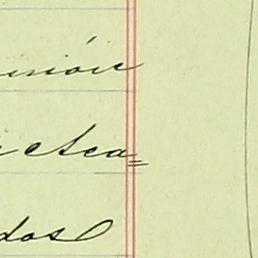 nión
etca=
dos